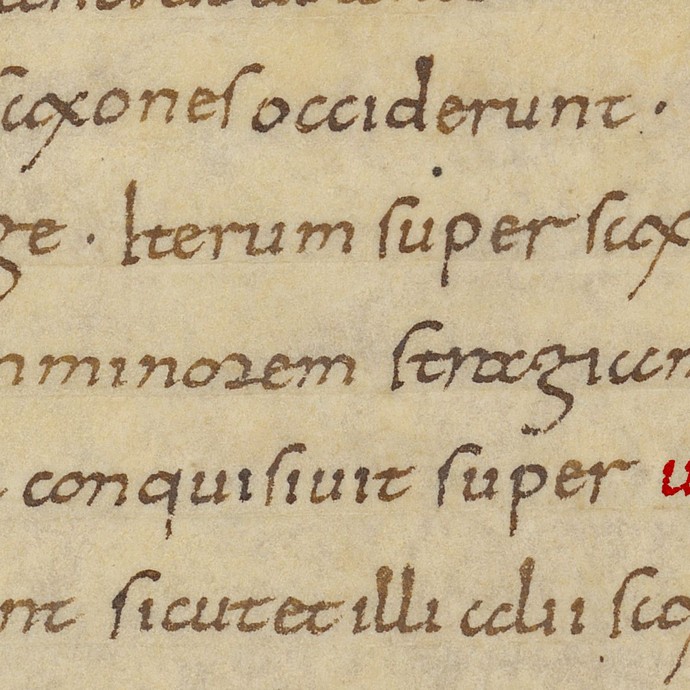 saxones occiderunt ·
ge · Iterum super sax
nminorem stragiam
conquisiuit super u
nt sicutetilli alii sax